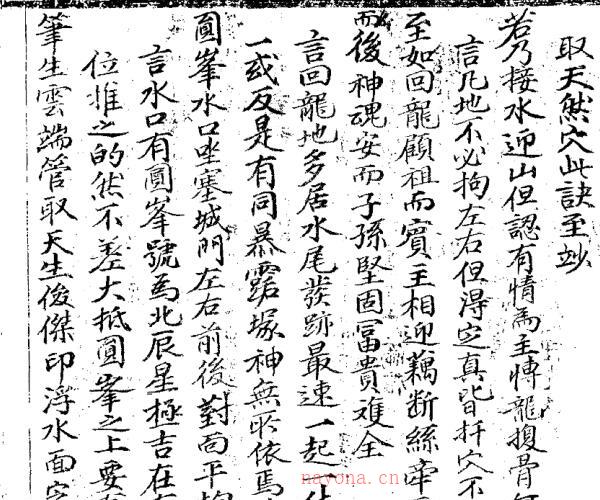 取天然穴此訣至妙
若乃接水迎山但認有情為主愽龍換骨
言凡地不必拘左右但得穴真皆扦穴不
至如回龍顧祖而賓主相迎藕断絲牽
而後神魂安而子孫堅固冨貴𩀱全
言回龍地多居水尾發跡最速一起
一或反是有同暴露塚神無所依焉
圓峯水口坐塞城門左右前後對面平
言水口有圓峯號為北辰星極吉在
位推之的然不差大抵圓峯之上要
筆生雲端管取天生俊傑印浮水面定
nayona.cn